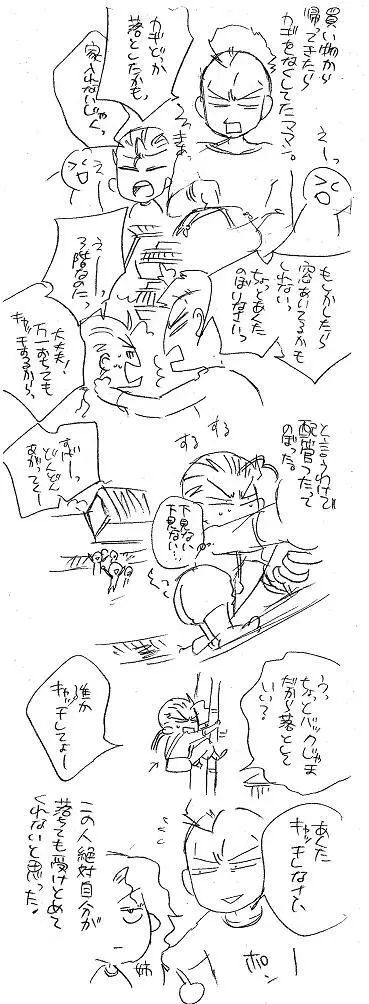 買い物から
帰ってきたら
カギをなくしてたママン。
カギどっか
落としたかも、
家入れないじゃん、
えーっ
えーっ
もしかしたら
窓あいてるかも
しれないっ
ちょっとあくた
のぼりなさいっ
えーっ
3階なのにっ
大丈夫!
万一おちても
キャッチするから、
と言うわけで
配管つたって
のぼった。
する
する
すげーっ
どんどん
あがってくー
下見ない、
下見ない…!
うっ
ちょっとバックじゃま
だから落として
いい?
誰か
キャッチしてよー
あくた
キャッチしなさい、
ポーン
姉
この人絶対自分が
落ちても受けとめて
くれないと思った。